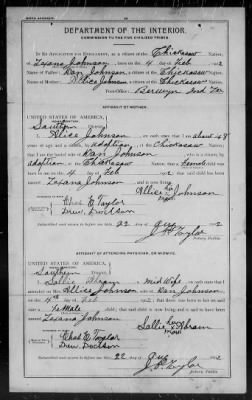 DEPARTMENT OF THE INTERIOR,
COMMISSION TO THE FIVE CIVILIZED TRIBES.
IN RE APPLICATION FOR ENROLLMENT, as a citizen of the Chickasaw Nation,
of Zoiana Johnson, born on the 4 day of Feb, 1902
Name of Father: Dan Johnson a citizen of the Chickasaw Nation.
Name of Mother: Allice Johnson a citizen of the Chickasaw Nation.
Post-Office, Berwyn Ind Ter
AFFIDAVIT OF MOTHER.
UNITED STATES OF AMERICA,
Southern District.
I, Allice Johnson, on oath state that I am about 48
years of age and a citizen, by adoption, of the Chickasaw Nation;
that I am the lawful wife of Dan Johnson, who is a citizen, by
adoption of the Chickasaw Nation; that a Female child was
born to me on the 4 day of Feb, 1902
Zoiana Johnson
Allice her x mark Johnson
Chas G Taylor
Drew Dockson
Subscribed and sworn to before me this 22 day of Aug 1902
J. H. Taylor
Notary Public.
AFFIDAVIT OF ATTENDING PHYSICIAN, OR MIDWIFE.
UNITED STATES OF AMERICA,
Southern District.
I, Sallie Abram, a Mid Wife, on oath state that I
attended on Mrs. Allice Johnson, wife of Dan Johnson
on the 4th day of Feb, 1902; that there was born to her on said date a
Female child; that said child is now living and is said to have been named
Zoiana Johnson
Sallie her x mark Abram
Chas G Taylor
Drew Dockson
Subscribed and sworn to before me this 22 day of Aug 1902
J. H. Taylor
Notary Public.